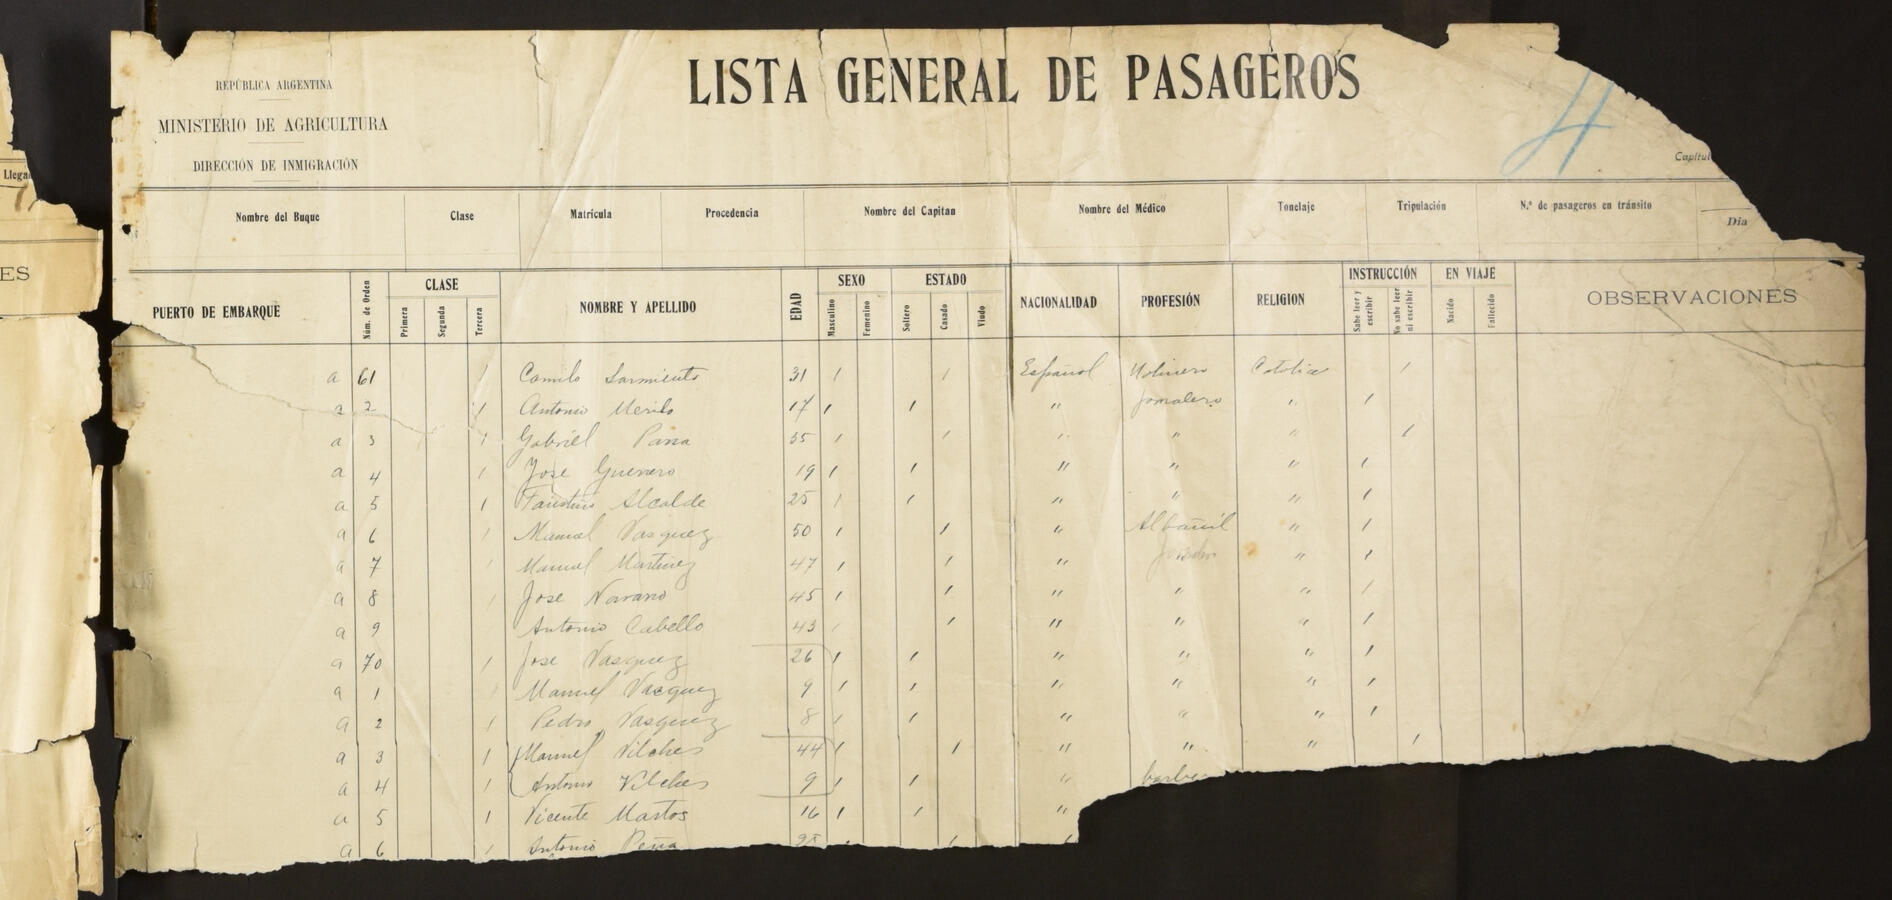 Llega
ES
REPÚBLICA ARGENTINA
MINISTERIO DE AGRICULTURA
DIRECCIÓN DE INMIGRACIÓN
LISTA GENERAL DE PASAGEROS
4
Capitul
Nombre del Buque Clase Matrícula Procedencia Nombre del Capitan Nombre del Médico Tonelaje Tripulación N.º de pasageros en tránsito Dia
PUERTO DE EMBARQUE Núm. de Orden CLASE Primera Segunda Tercera NOMBRE Y APELLIDO EDAD SEXO Masculino Femenino ESTADO Soltero Casado Viudo NACIONALIDAD PROFESIÓN RELIGION INSTRUCCIÓN Sabe leer y escribir No sabe leer ni escribir EN VIAJE Nacido Fallecido OBSERVACIONES
a 61 / Camilo Sarmiento 31 / / Español Molinero Catolica /
a 2 / Antonio Merilo 17 / / " Jornalero " /
a 3 / Gabriel Parra 35 / / " " " /
a 4 / Jose Guerrero 19 / / " " " /
a 5 / Faustino Alcalde 25 / / " " " /
a 6 / Manuel Vasquez 50 / / " Albañil " /
a 7 / Manuel Martinez 47 / / " " /
a 8 / Jose Navarro 45 / / " " " /
a 9 Antonio Cabello 43 / / " " " /
a 70 / Jose Vasquez 26 / / " " " /
a 1 / Manuel Vasquez 9 / / " " " /
a 2 / Pedro Vasquez 8 / / " " " /
a 3 / Manuel Vilches 44 / / " " " /
a 4 / Antonio Vilches 9 / / " barbe
a 5 / Vicente Martos 16 / / "
a 6 / Antonio Peña / /